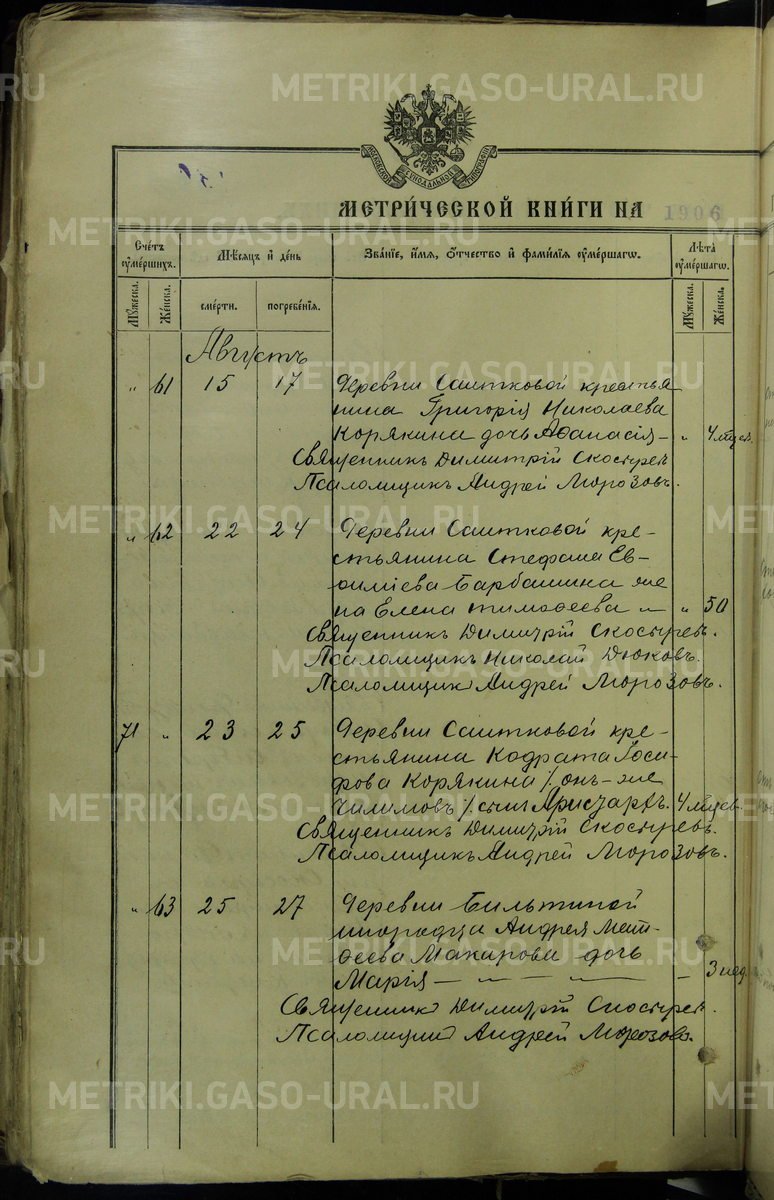 МОСКОВСКОЙ СѴНОДАЛЬНОЙ ТИПОГРАФІИ
МЕТРИ́ЧЕСКОЙ КНИ́ГИ НА 1906
Сче́тъ ᲂумершихъ.
Мѣсяцъ и҆ де́нь
Зва́нїе, и҆́мя, ѻ҆́тчество и҆ фами́лїя ᲂумершагѡ.
Лѣта̀ ᲂумершагѡ.
Мꙋжеска.
Же́нска.
сме́рти.
погребе́нїя.
Мꙋжеска.
Же́нска.
Августъ
„ 61 15 17 Деревни Саитковой крестья
нина Григорія Николаева
Корякина дочь Аѳанасія — „ 4 мѣсяц.
Священникъ Димитрій Скосырев
Псаломщикъ Андрей Морозовъ.
„ 62 22 24 Деревни Саитковой кре-
стьянина Стефана Ев-
ѳиміева Барбашина же
на Елена Тимоѳеева — „ 50
Священникъ Димитрій Скосыревъ.
Псаломщикъ Николай Дюковъ.
Псаломщик Андрей Морозовъ.
71 „ 23 25 Деревни Саитковой кре-
стьянина Кодрата Іоси-
фова Корякина / онъ-же
Чилимовъ / сынъ Аристархъ. 4 мѣсяцев
Священникъ Димитрій Скосыревъ.
Псаломщикъ Андрей Морозовъ.
„ 63 25 27 Деревни
инородца Андрея Мат-
ѳеева Макарова дочь
Марія — — — — 3 нед.
Священник Димитрій Скосырев.
Псаломщик Андрей Морозовъ.
METRIKI.GASO-URAL.RU